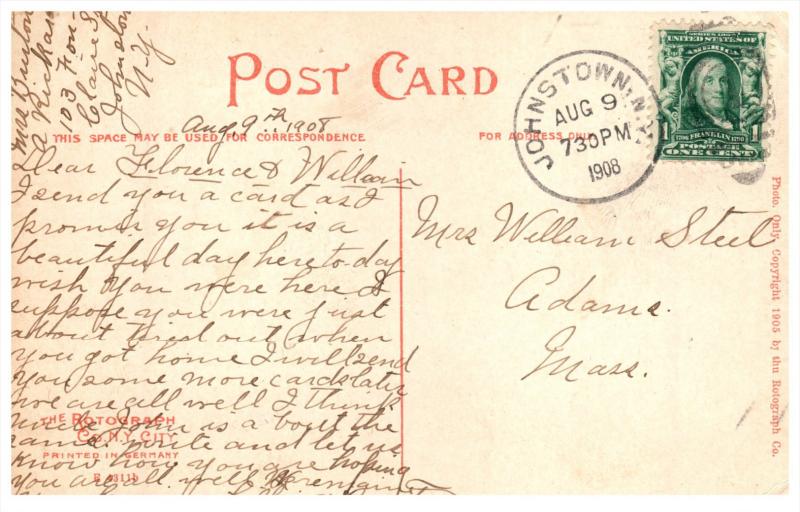 POST CARD
THIS SPACE MAY BE USED FOR CORRESPONDENCE
FOR ADDRESS ONLY
Aug 9th 1908
Dear Florence & William
I send you a card as I
promis you it is a
beautiful day here to-day
wish you were here I
suppose you were just
about tired out when
you got home I will send
you some more cards later
we are all well I think
uncle John is about the
same. write and let us
know how you are hoping
you are all well I remain
103
Johnstown
N.Y.
JOHNSTOWN, N.Y.
AUG 9
730PM
1908
SERIES 1902
UNITED STATES OF
AMERICA
1706 FRANKLIN 1790
1 1
POSTAGE
ONE CENT
Mrs William Steel
Adams.
Mass.
Photo. Only, Copyright 1905 by the Rotograph Co.
THE ROTOGRAPH
Co., N.Y. CITY
PRINTED IN GERMANY